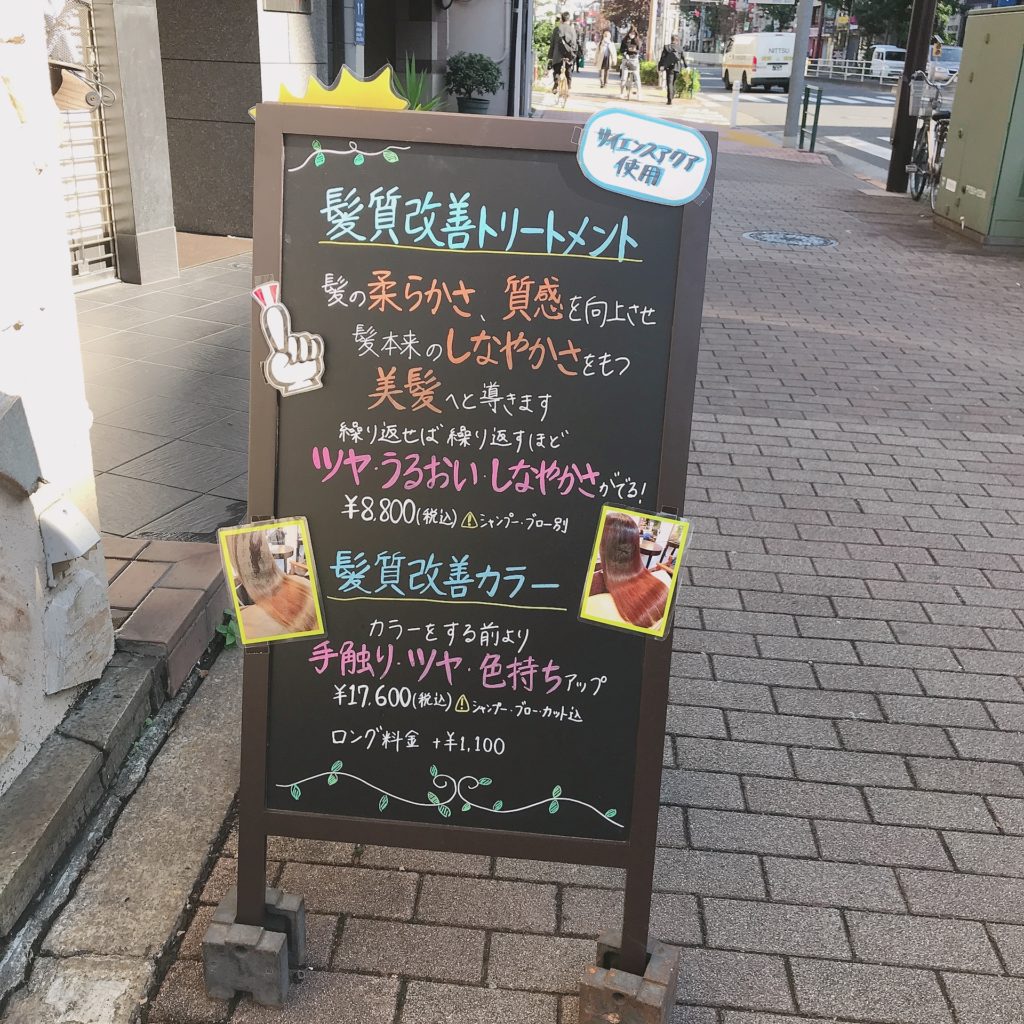 サイエンスアクア
使用
髪質改善トリートメント
髪の柔らかさ、質感を向上させ
髪本来のしなやかさをもつ
美髪へと導きます
繰り返せば繰り返すほど
ツヤ・うるおい・しなやかさがでる!
¥8,800(税込)⚠シャンプー・ブロー別
髪質改善カラー
カラーをする前より
手触り・ツヤ・色持ちアップ
¥17,600(税込)⚠シャンプー・ブロー・カット込
ロング料金 +¥1,100
NITTSU
11